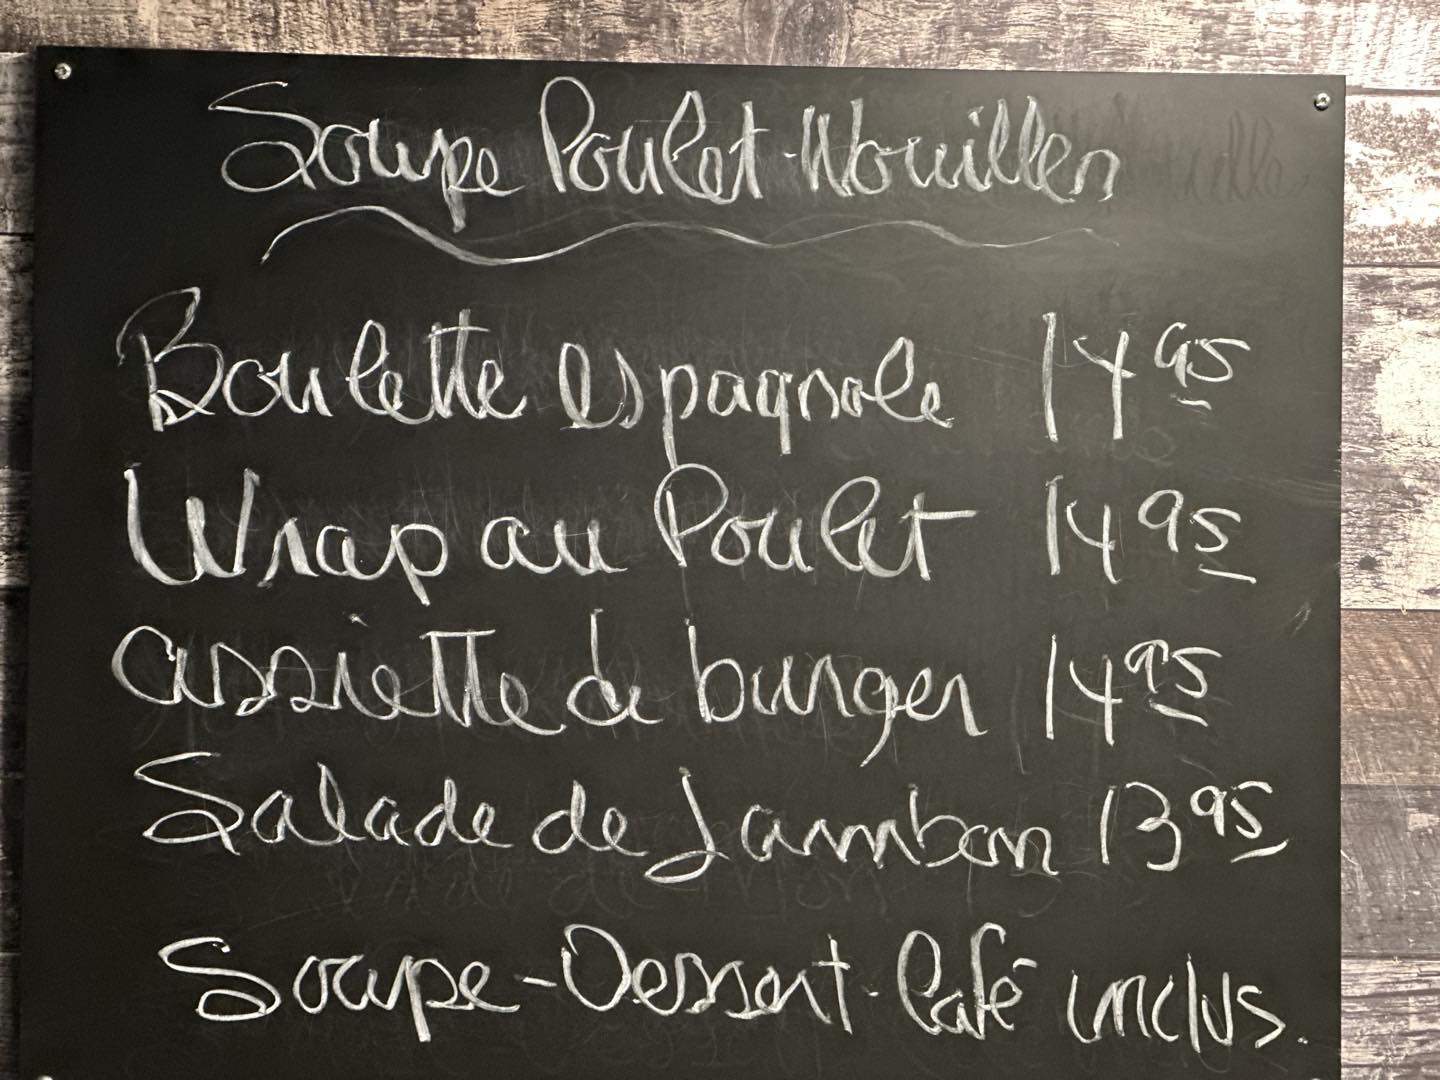 Soupe Poulet-Nouilles
Boulette espagnole 14 95
Wrap au Poulet 14 95
assiette de burger 14 95
Salade de Jambon 13 95
Soupe-Dessert-Café inclus.